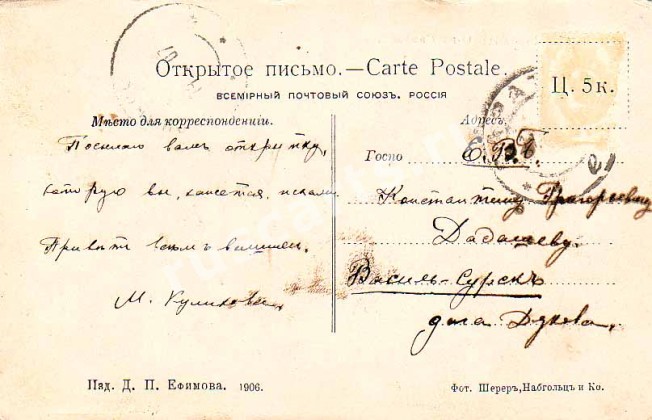 Открытое письмо.—Carte Postale.
ВСЕМІРНЫЙ ПОЧТОВЫЙ СОЮЗЪ. РОССІЯ
Ц. 5 к.
Мѣсто для корреспонденціи.
Посылаю вамъ открытку,
которую вы, кажется, искали
Привѣтъ всѣмъ вашимъ.
М. Куликова
Адресъ.
Госпо
Е.В.Б.
Константину Григорьевичу
Дадашеву.
Василь-Сурскъ
дома Дядкова
Изд. Д. П. Ефимова. 1906.
Фот. Шереръ, Набгольцъ и Ко.